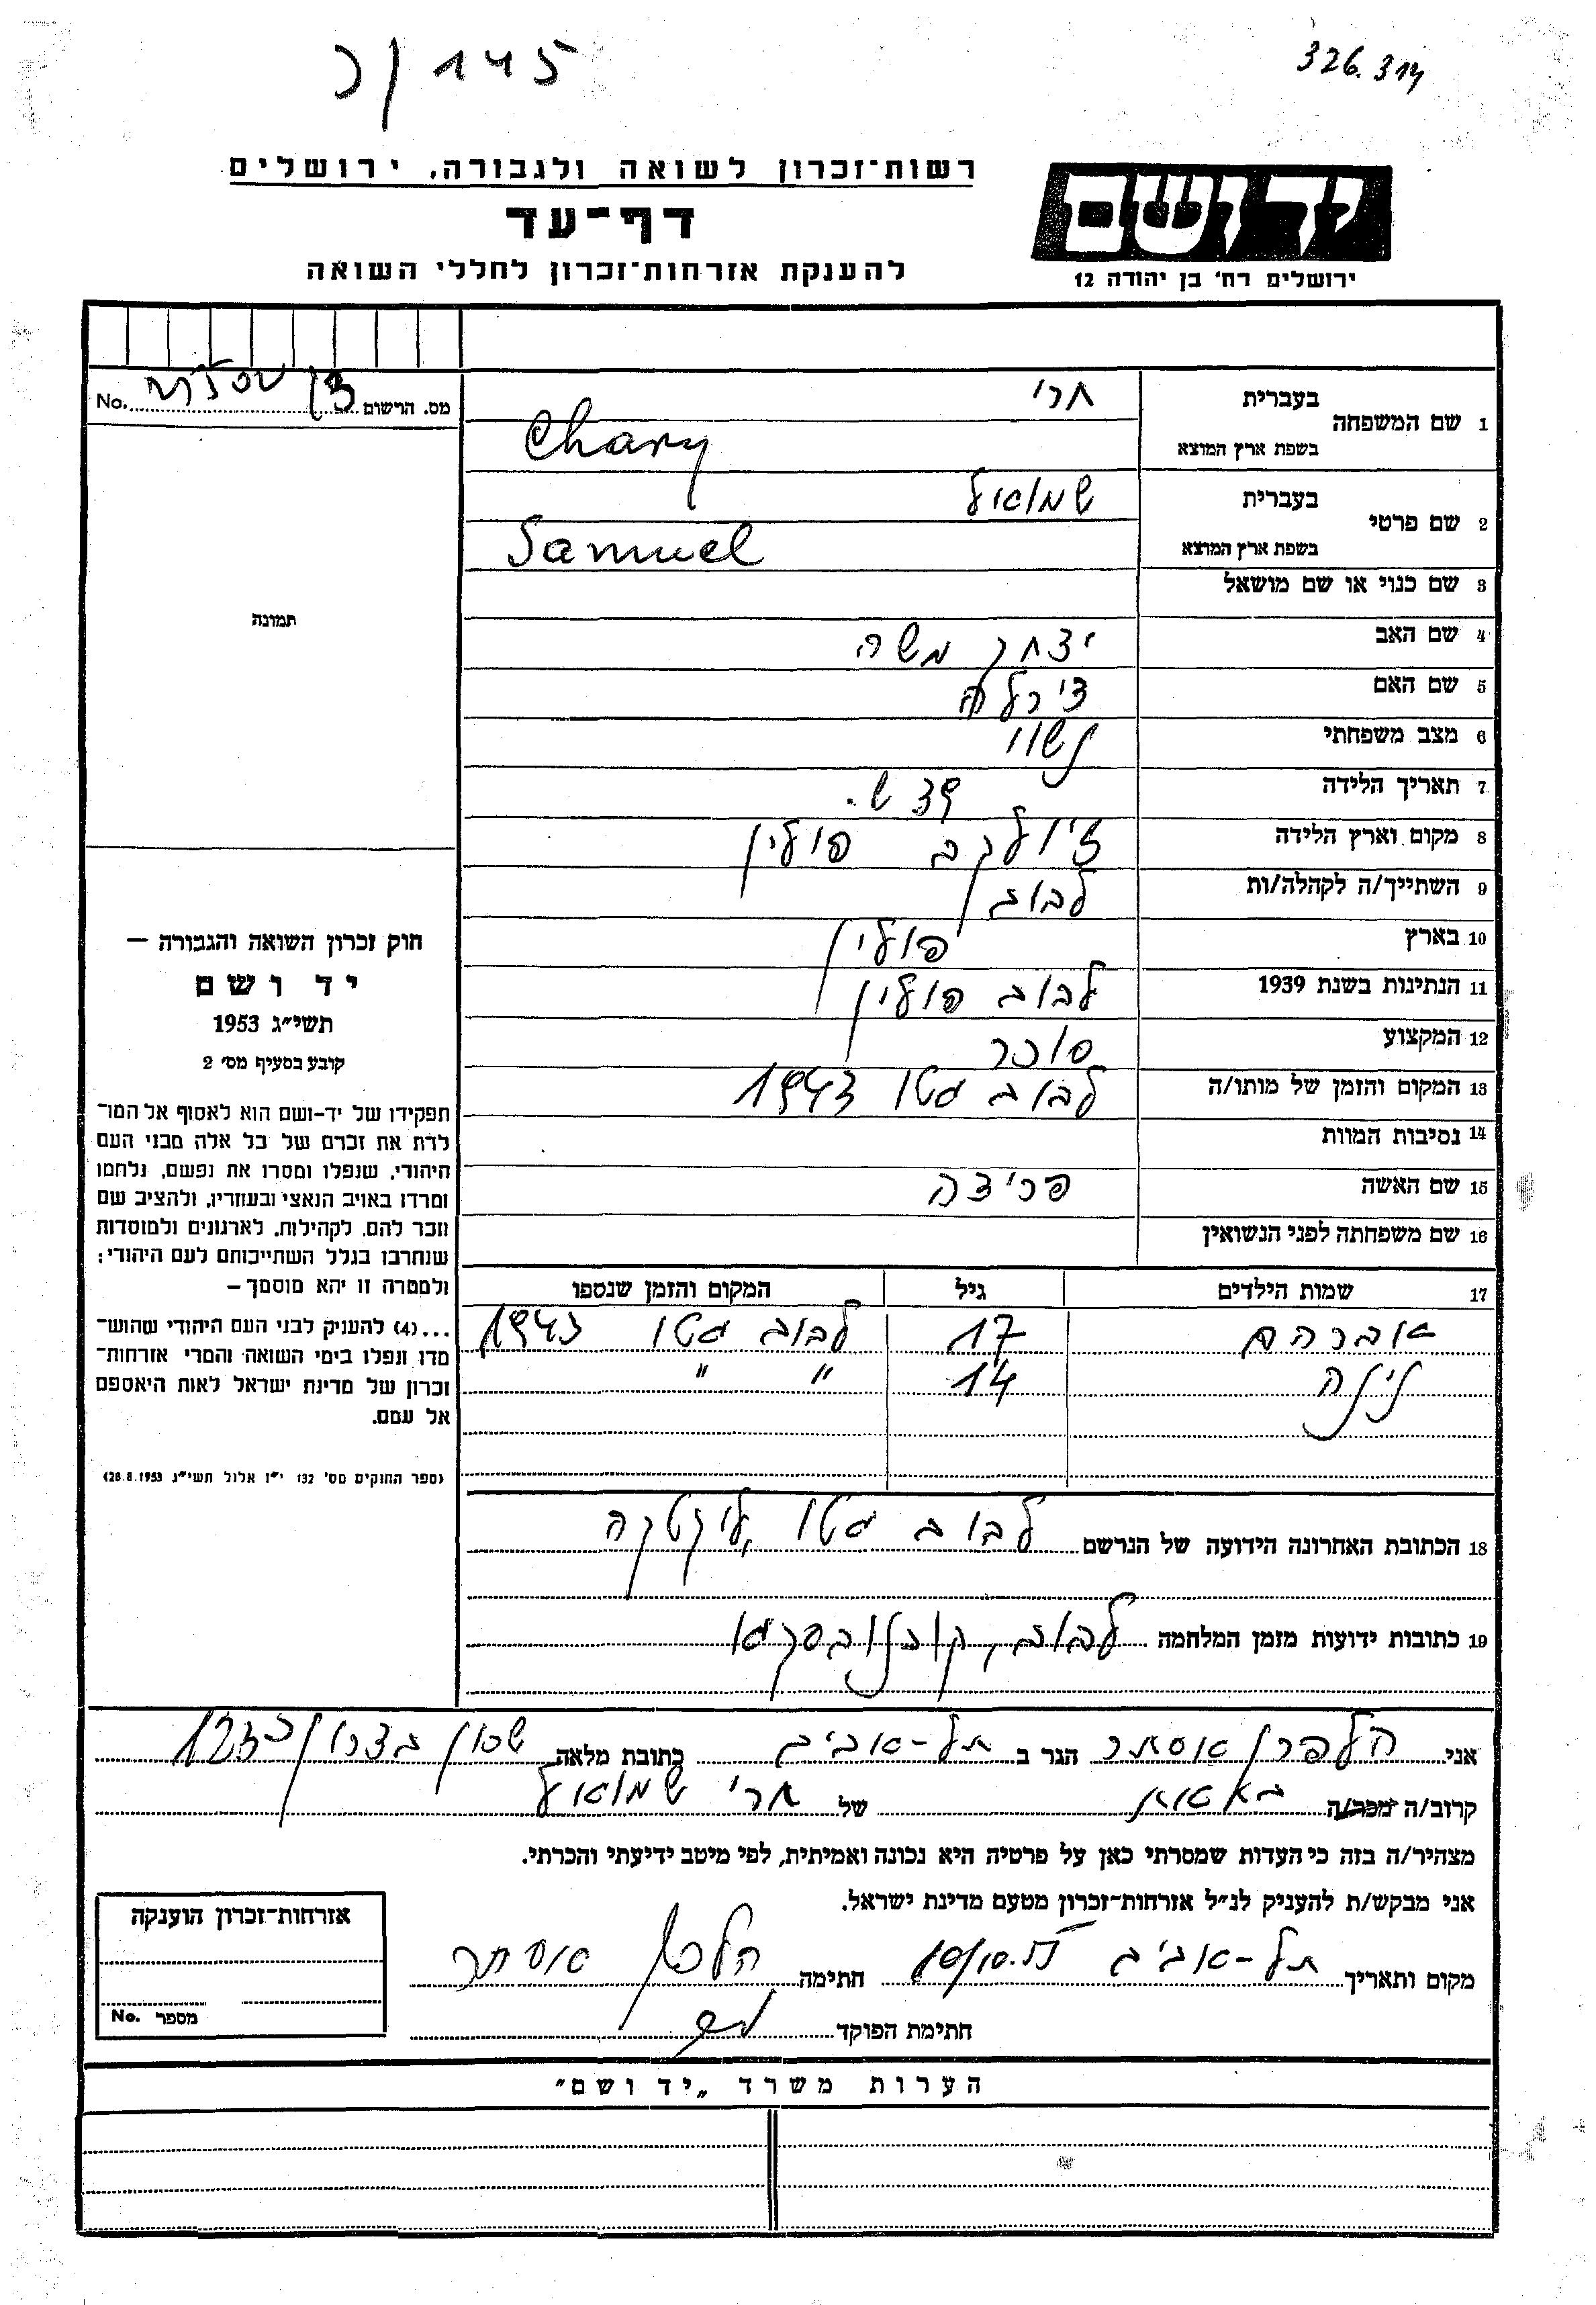 כ/145
326.314
יד ושם
ירושלים רח' בן יהודה 12
רשות־זכרון לשואה ולגבורה, ירושלים
דף־עד
להענקת אזרחות־זכרון לחללי השואה
מס. הרשום No.
1 שם המשפחה
בעברית חרי
בשפת ארץ המוצא Chary
2 שם פרטי
בעברית שמואל
בשפת ארץ המוצא Samuel
3 שם כנוי או שם מושאל
4 שם האב יצחק משה
5 שם האם צירלה
6 מצב משפחתי נשוי
7 תאריך הלידה 39 ש.
8 מקום וארץ הלידה ז'ולקב פולין
9 השתייך/ה לקהלה/ות לבוב
10 בארץ פולין
11 הנתינות בשנת 1939 לבוב פולין
12 המקצוע סוכר
13 המקום והזמן של מותו/ה לבוב גטו 1943
14 נסיבות המוות
15 שם האשה פריצה
16 שם משפחתה לפני הנשואין
17 שמות הילדים גיל המקום והזמן שנספו
אברהם 17 לבוב גטו 1943
נינה 14 " "
18 הכתובת האחרונה הידועה של הנרשם לבוב גטו
19 כתובות ידועות מזמן המלחמה לבוב,
תמונה
חוק זכרון השואה והגבורה —
יד ושם
תשי״ג 1953
קובע בסעיף מס׳ 2
תפקידו של יד-ושם הוא לאסוף אל המו־
לדת את זכרם של כל אלה מבני העם
היהודי, שנפלו ומסרו את נפשם, נלחמו
ומרדו באויב הנאצי ובעוזריו, ולהציב שם
וזכר להם, לקהילות, לארגונים ולמוסדות
שנחרבו בגלל השתייכותם לעם היהודי;
ולמטרה זו יהא מוסמך —
...(4) להעניק לבני העם היהודי שהוש־
מדו ונפלו בימי השואה והמרי אזרחות־
זכרון של מדינת ישראל לאות היאספם
אל עמם.
(ספר החוקים מס׳ 132 י״ז אלול תשי״ג 28.8.1953)
אני הלפרן אסתר הגר ב תל-אביב כתובת מלאה שכון בצרון
קרוב/ה מכר/ה של חרי שמואל
מצהיר/ה בזה כי העדות שמסרתי כאן על פרטיה היא נכונה ואמיתית, לפי מיטב ידיעתי והכרתי.
אני מבקש/ת להעניק לנ״ל אזרחות־זכרון מטעם מדינת ישראל.
מקום ותאריך תל-אביב חתימה הלפרן אסתר
חתימת הפוקד
אזרחות־זכרון הוענקה
מספר No.
הערות משרד „יד ושם״